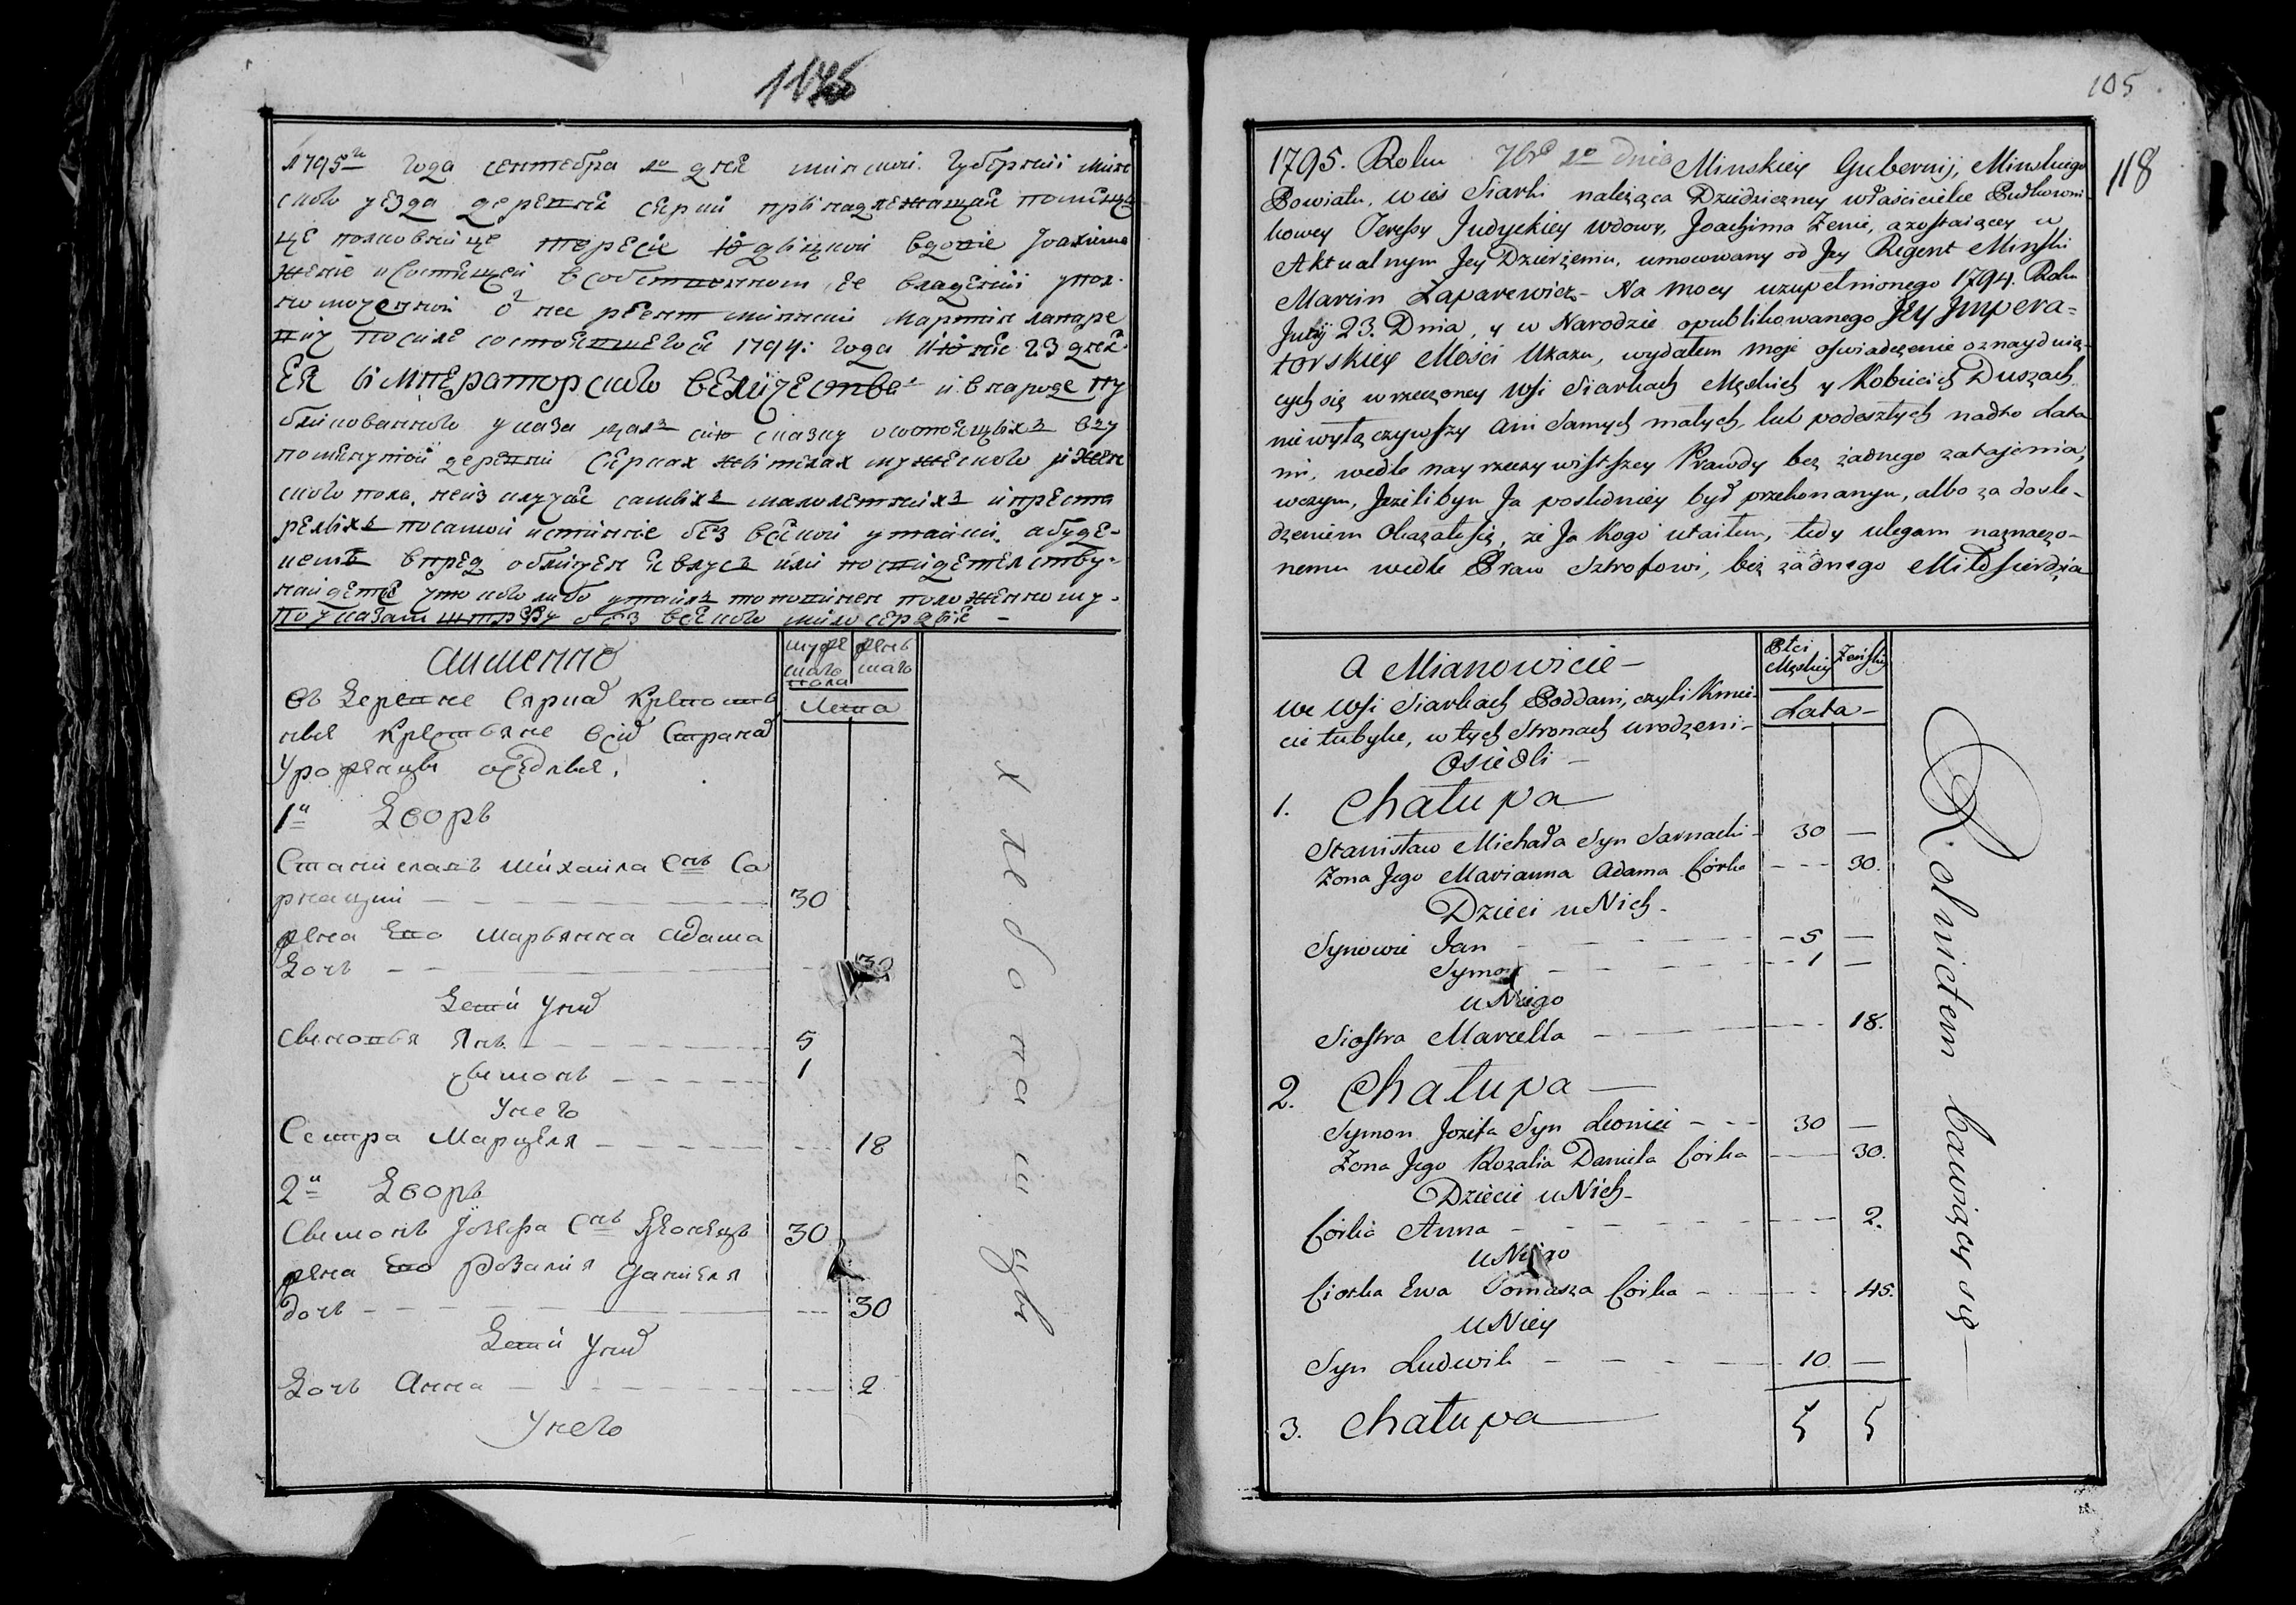 1795го года сентебра 1го дня минской губернии минс
скаго уезда деревня сярки прынадлежащая помещы
це полковнице тересе юдыцкой вдове Іоахима
жене и состоящей в собственном ее владении упол-
номоченной от нее реент минский мартин лапаре
вич по силе состоявшегося 1794: года июня 23 дня
ЕЯ ИМПЕРАТОРСКАГО ВЕЛИЧЕСТВА и в народе пу
бликованнаго указа дал сию сказку о состоящых в вы
помянутой деревни сярках жытелях мужескаго и жен
скаго пола, неизключая самых малолетних и преста
релых по самой истинне без всякой утайки, а буде-
менѣ впред обличен явлус или по свидетелству-
найдетца что кого либо утаил то повинен положенному-
по указам штрафу без всякаго милосердыя -
а именно
муже
скаго
пола
женъ
скаго
Лета
Въ Деревне Сярках Крепостъ
ные Крестьяне всих Странах
Уроженцы оседлые.
1й Дворъ
Станиславъ Михаила Снъ Са
рнацки 30
жена Его Марьянна Адама
Дочь 30
Дети У них
Сыновья Янъ 5
Сымонъ 1
У него
Сестра Марцеля 18
2й Дворъ
Сымонъ Іозефа Снъ 30
жена Его Розалия Даниеля
дочь 30
Дети У них
Дочь Анна 2
У него
105
118
1795. Roku 7bra 1o dnia Minskiey Gubernij, Minskiego
Powiatu, wieś Siarki należąca Dziedziczney właścicielce Pułkowni-
kowey Teressy Judyckiey wdowy, Joachima Żenie, a zostaiącey w
Aktualnym Jey Dzierżeniu, umocowany od Jey Regent Minski
Marcin Łaparewicz - Na mocy uzupełnionego 1794. Roku
Junij 23. Dnia, y w Narodzie opublikowanego Jey Impera=
torskiey Mości Ukazu, wydałem moje oświadczenie o znayduią-
cych się w rzeczoney Wsi Siarkach Męskich y Kobiecich Duszach
nie wyłączywszy ani Samych małych, lub podeszłych nadto Lata
mi, wedle nayrzeczywistszey Prawdy bez żadnego zatajenia,
w czym, Jeżelibym Ja poslidniey był przekonanym, albo za dosle-
dzeniem Okazałosię, że Ja Kogo utaiłem, tedy ulegam naznaczo-
nemu wedle Praw Sztrofowi, bez żadnego Miłosierdzia
a Mianowicie -
Płci
Męskiey
Żeńskiey
Lata -
we Wsi Siarkach Poddani, czyli Kmie-
cie tubylce, w tych Stronach urodzeni -
Osiedli -
1. Chałupa
Stanisław Michała Syn Sarnacki - 30 —
Żona Jego Marianna Adama Córka - - - 30.
Dzieci u Nich -
Synowie Jan - 5 —
Symon - 1 —
u Niego
Siostra Marcella 18.
2. Chałupa
Symon Jozefa Syn - - 30 —
Żona Jego Rozalia Daniela Córka 30.
Dziecie u Nich -
Córka Anna 2.
u Niego
Ciotka Ewa Tomasza Córka - 45.
u Niey
Syn Ludwik 10 —
3. Chałupa 5 5
Rolnictem bawiący się —